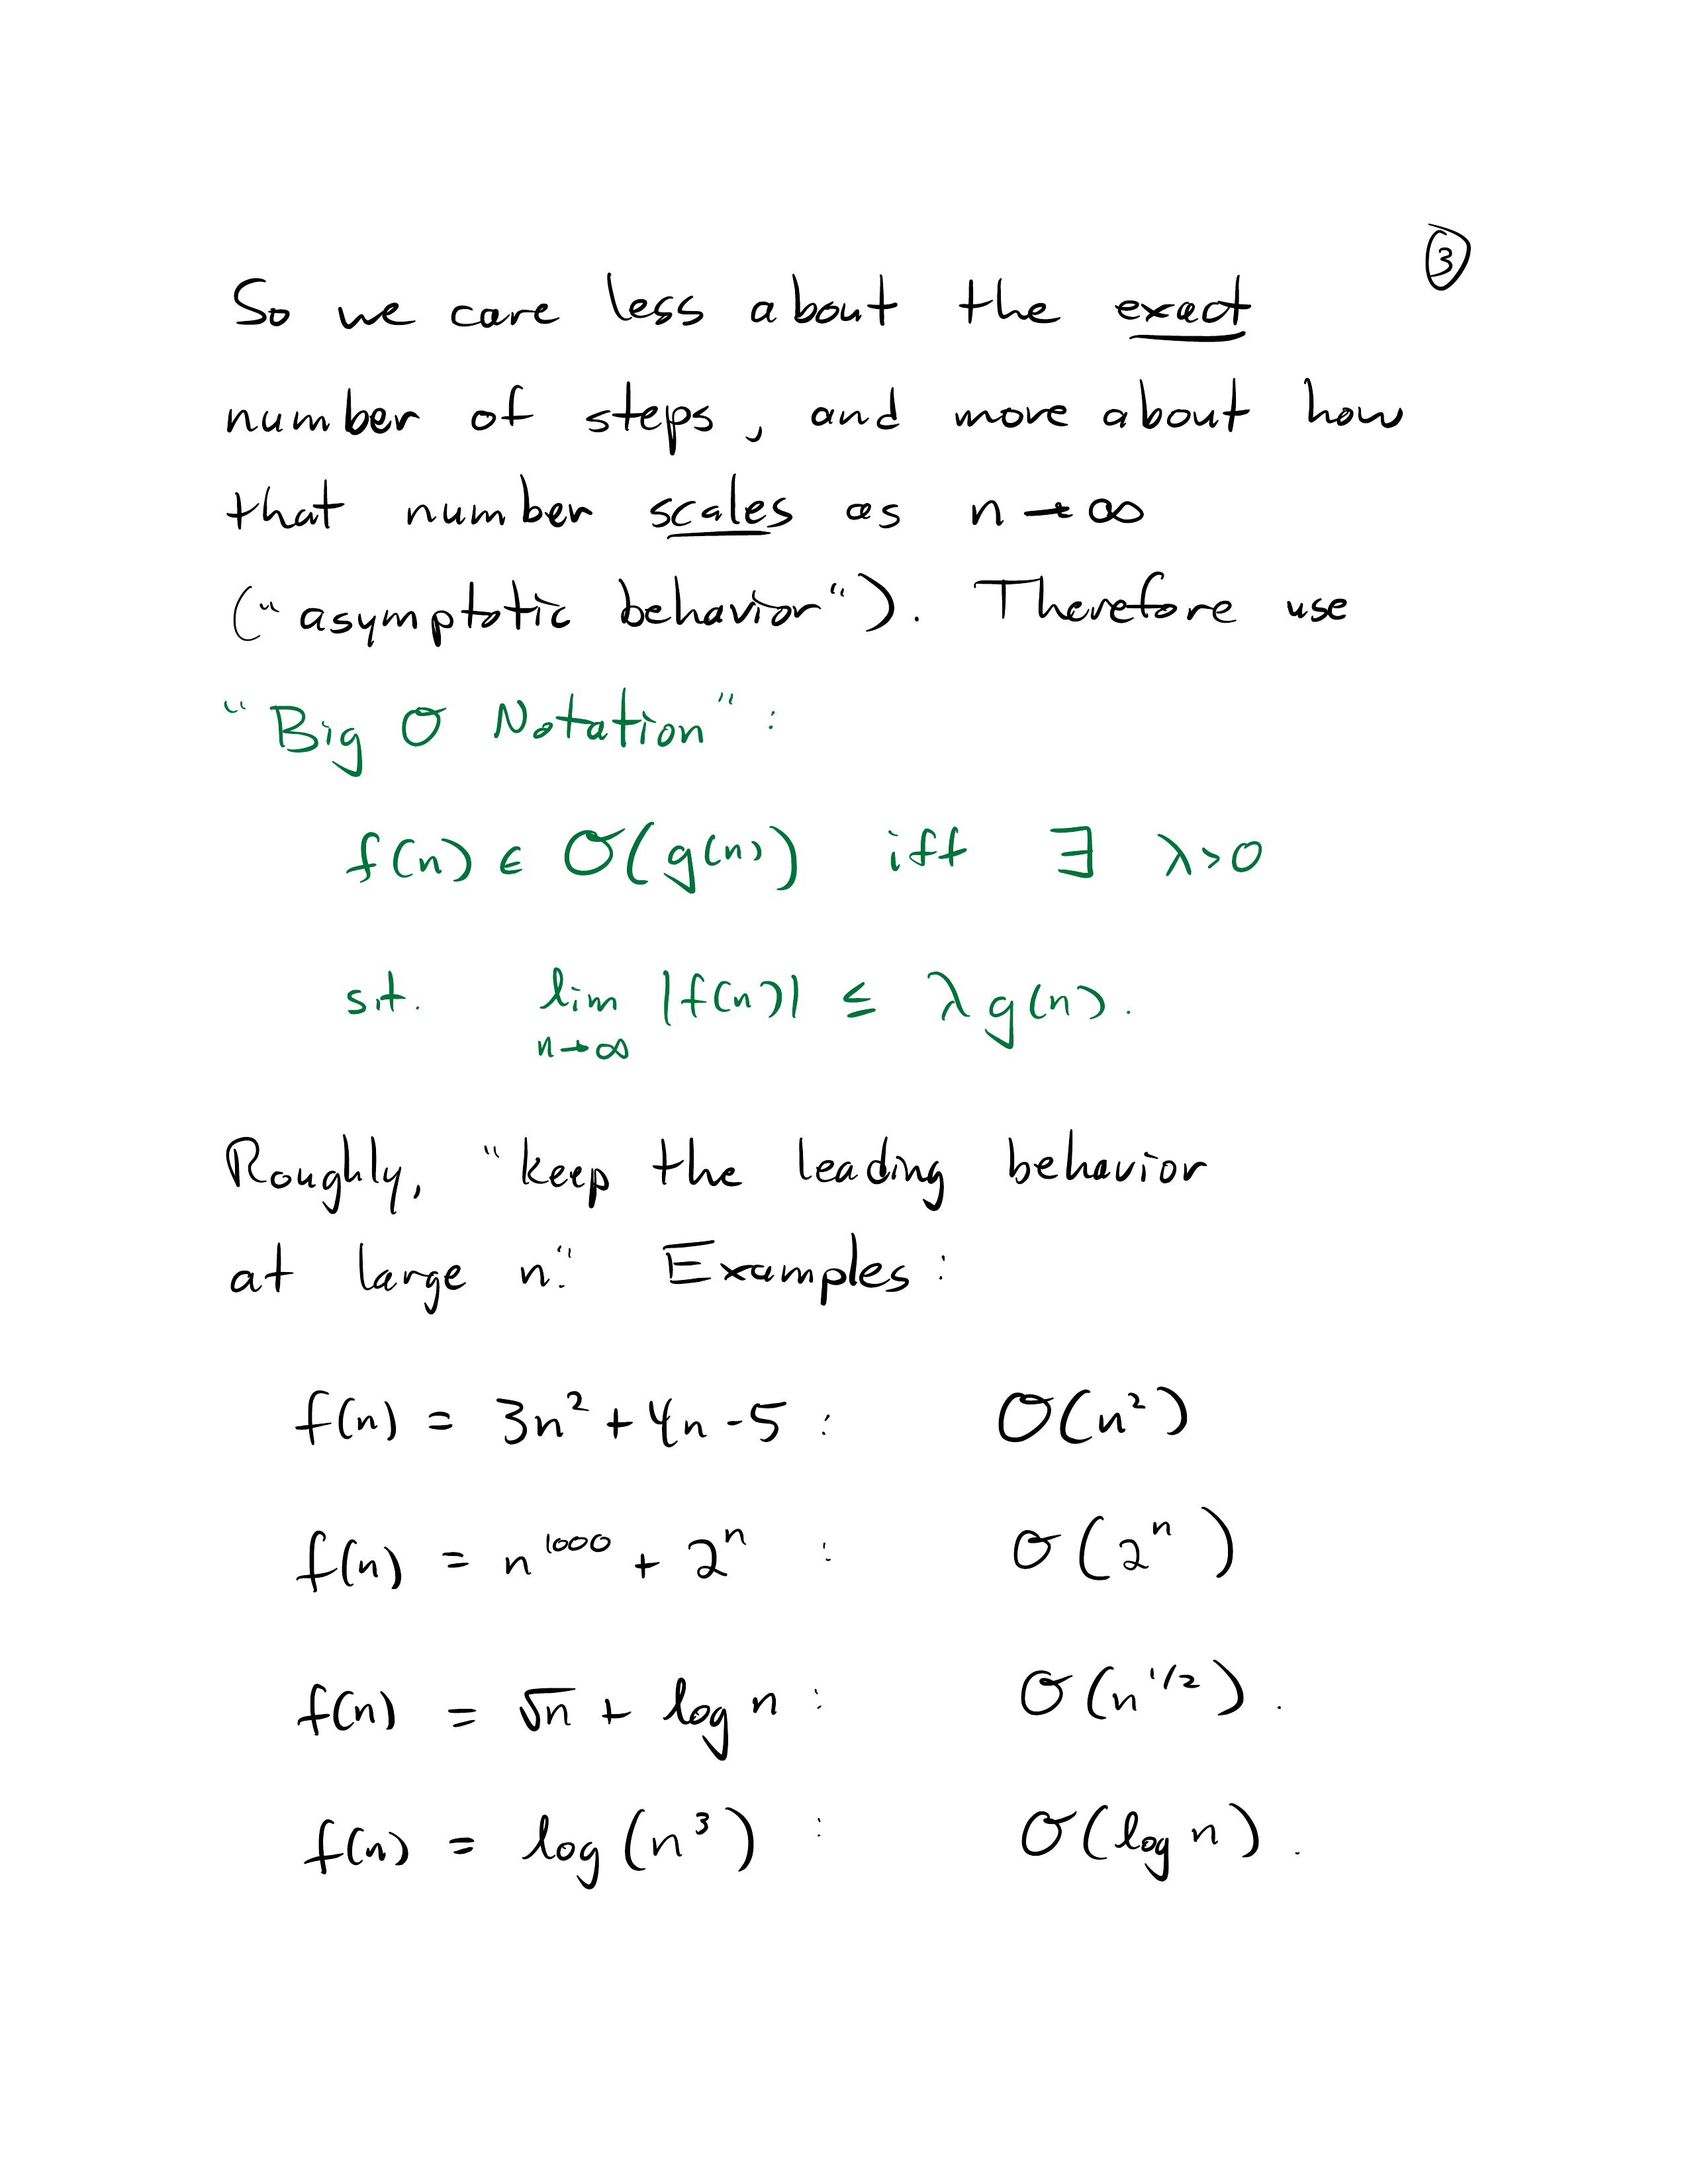 ③
So we care less about the exact
number of steps, and more about how
that number scales as n → ∞
("asymptotic behavior"). Therefore use
"Big O Notation":
f(n) ∈ O(g(n)) iff ∃ λ>0
s.t. lim |f(n)| ≤ λ g(n).
n→∞
Roughly, "keep the leading behavior
at large n." Examples:
f(n) = 3n² + 4n - 5 : O(n²)
f(n) = n¹⁰⁰⁰ + 2ⁿ : O(2ⁿ)
f(n) = √n + log n : O(n^1/2).
f(n) = log(n³) : O(log n).